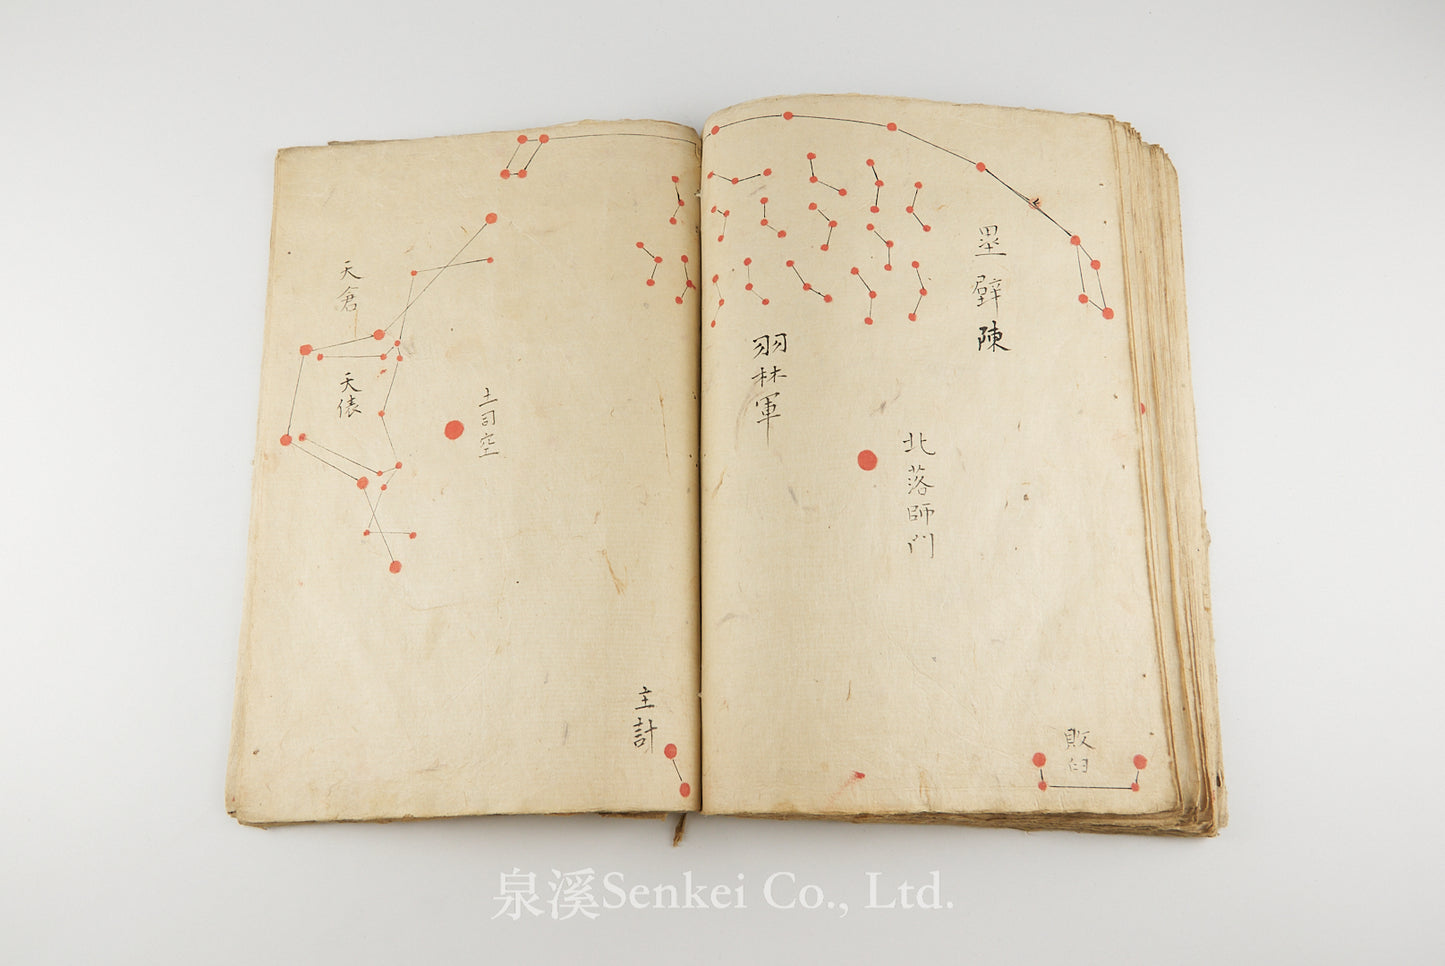 壘壁陳
北落師門
敗臼
羽林軍
土司空
主計
天倉
天俵
泉溪Senkei Co., Ltd.